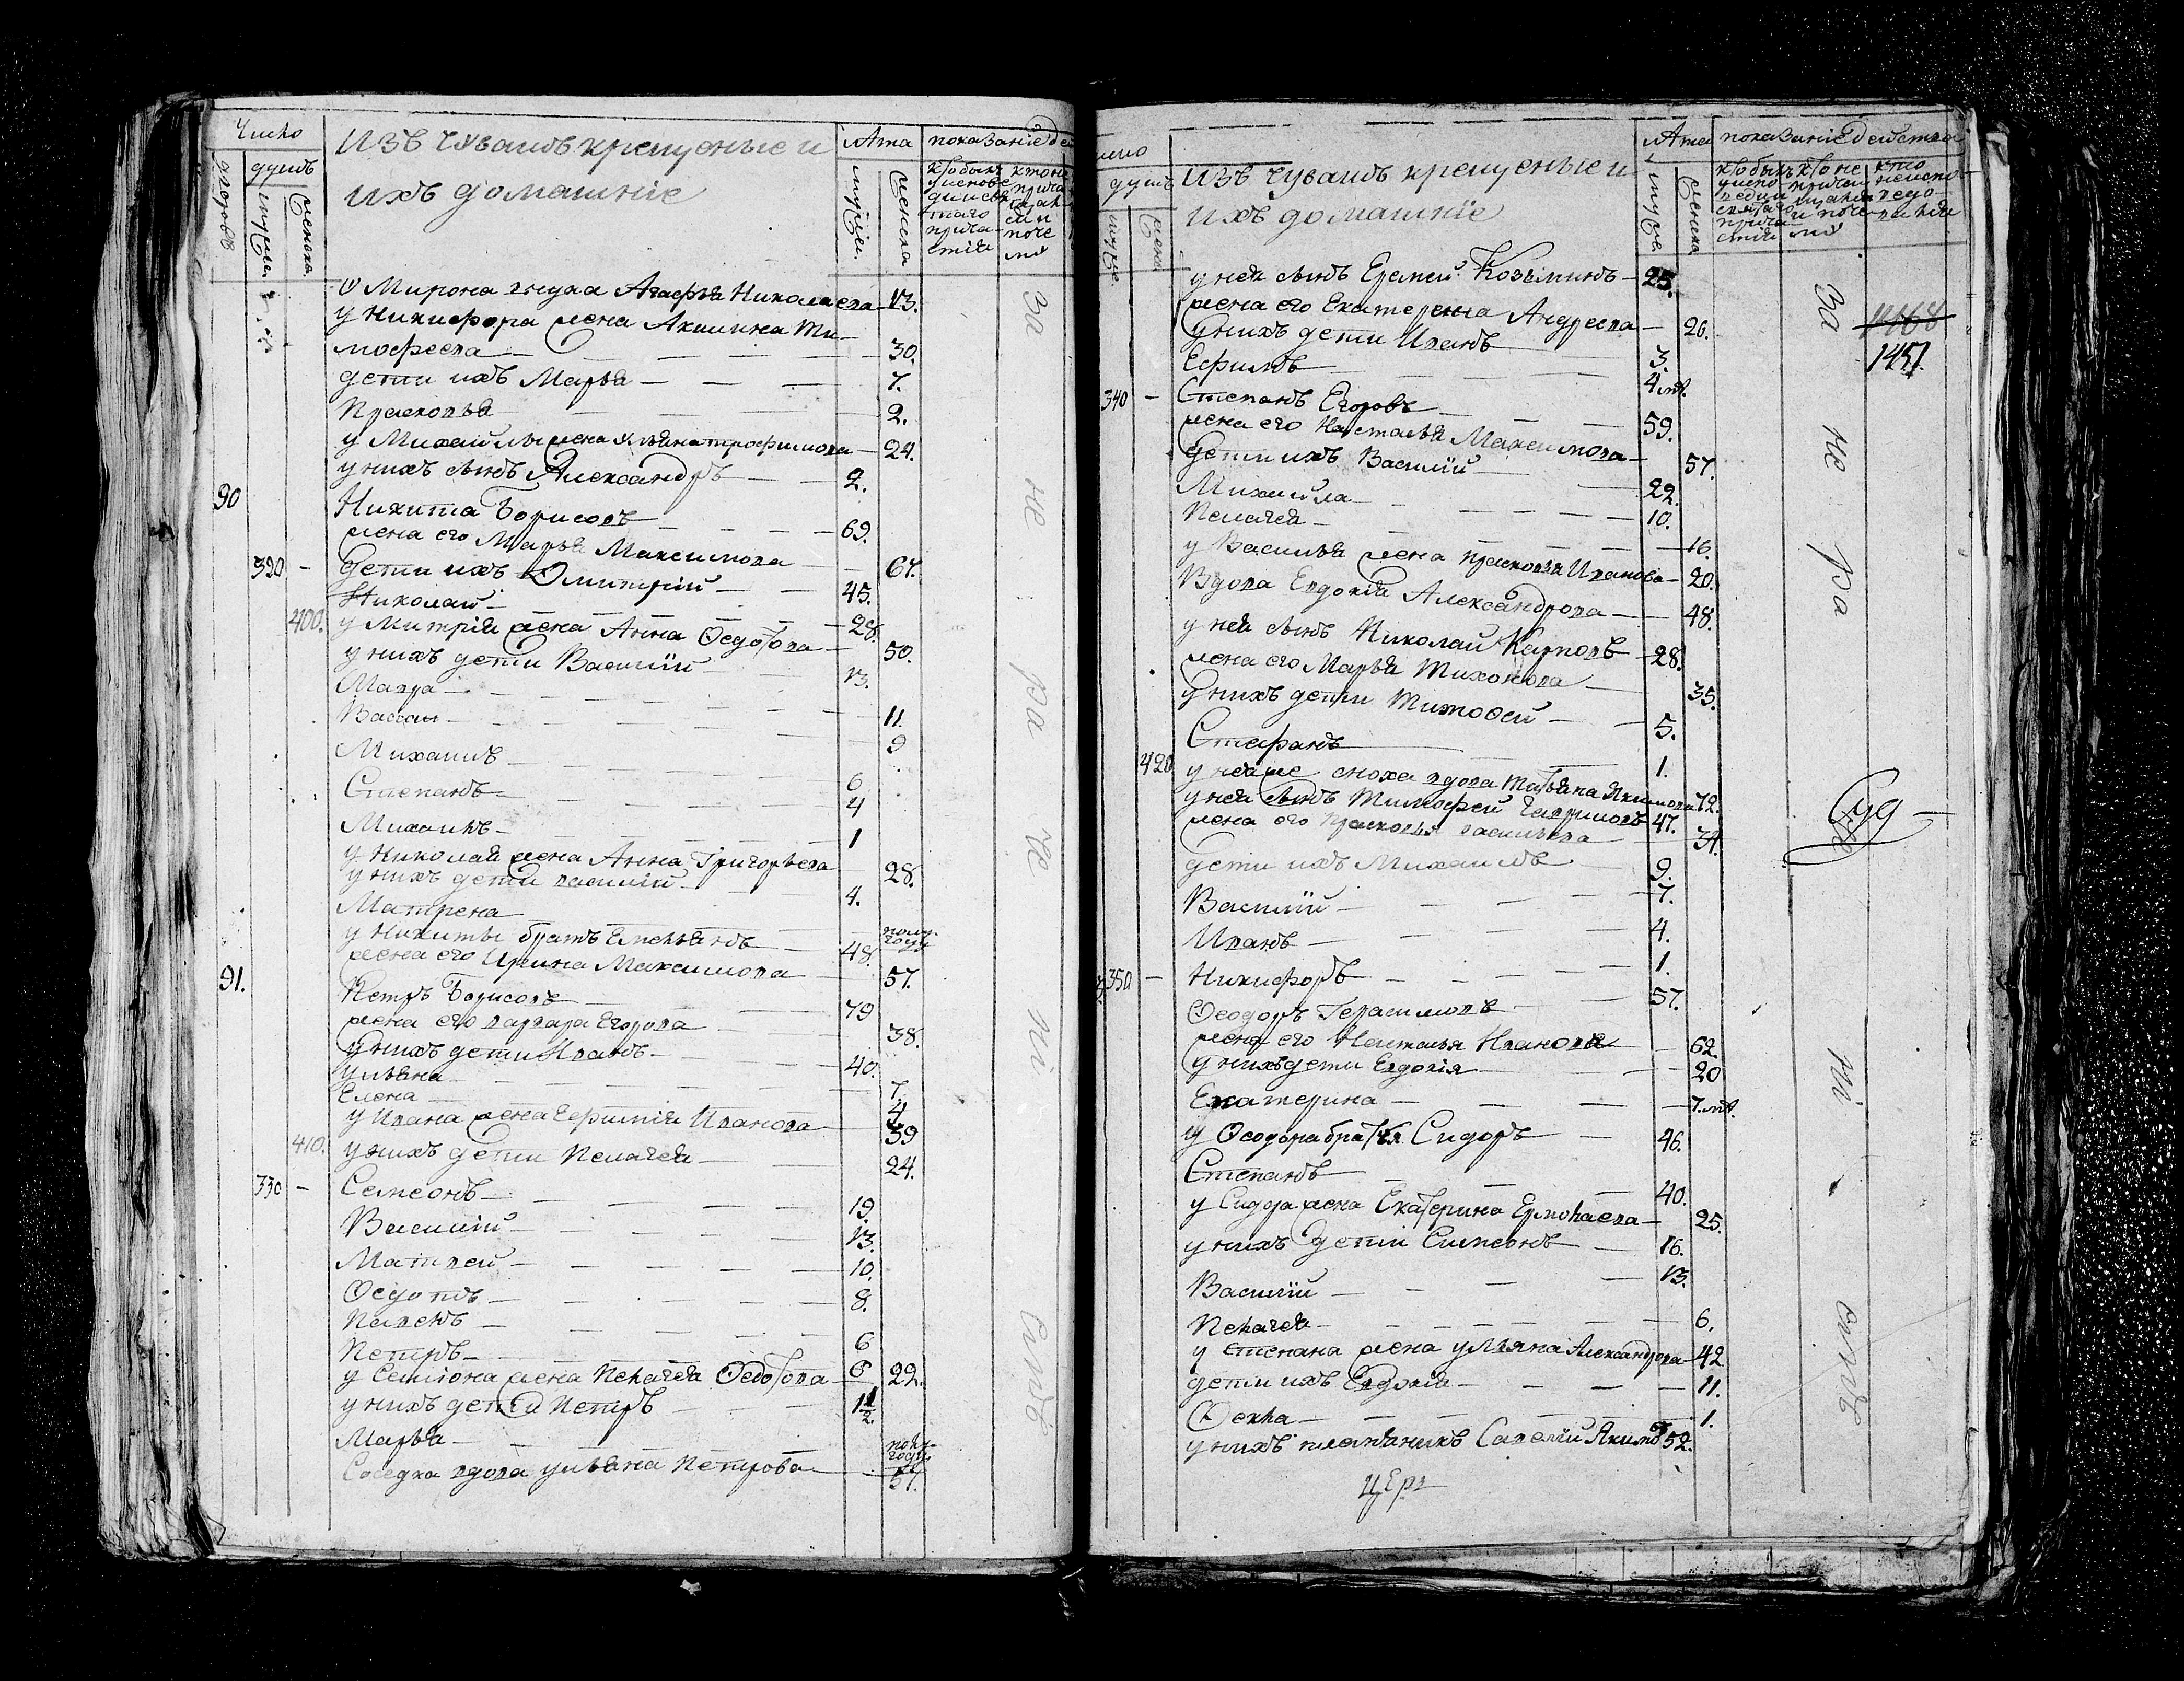 Число
дворовъ
душъ
мужеска
женска
изъ чувашъ крещеные и
ихъ домашніе
Лѣта
мужес.
женска
показаніе де
за не ра не ні емъ
О Мирона внука Агафья Николаева 13.
у Никифора жена Акилина Ти-
мофеева 30.
дети ихъ Марья 7.
Прасковья 2.
у Михаилы жена Ульяна трофимова 24.
у нихъ сынъ Александръ 2.
90 Никита Борисовъ 69.
жена его Марья Максимова 67.
320 дети ихъ Дмитрій 45.
Николай 28.
400. у Митрія жена Анна Ѳедотова 50.
у нихъ дети Василій 13.
Мавра 11.
Васса 9
Михаилъ 6
Степанъ 4
Михаилъ 1
у Николая жена Анна Григорьева 28.
у нихъ дети василій 4.
Матрена полу-году
у Никиты братъ Емельянъ 48.
жена его Ирина Максимова 57.
91. Петръ Борисовъ 79
жена его варвара Егорова 38.
у нихъ дети Иванъ 40.
Ульяна 7.
Елена 4
у Ивана жена Еѳимія Иванова 39
410. у нихъ дети Пелагея 24.
330 Семеонъ 19.
Василій 13.
Матвей 10.
Ѳедотъ 8.
Павелъ 6
Петръ 6
у Семіона жена Пелагея Ѳедотова 22.
у нихъ дети Петръ 1 1/2.
Марья полу-году
Соседка вдова ульяна Петрова 57.
число
душъ
мужес
женс
изъ чувашъ крещеные и
ихъ домашніе
Лѣта
мужес.
женска
показаніе действа
у ней сынъ Еремей Козьминъ 25.
жена его Екатерена Андреева 26.
у нихъ дети Иванъ 3.
Ефимъ 4 мѣ.
340 Степанъ Егоровъ 59.
жена его Настасья Максимова 57.
дети ихъ Василій 22.
Михаила 10.
Пелагея 16.
у Василья жена прасковья Иванова 20.
Вдова Евдокія Александрова 48.
у ней сынъ Николай Карповъ 28.
жена его Марья Тихонова 35.
у нихъ дети Тимоѳей 5.
Стефанъ 1.
420 у нея же сноха вдова Татьяна Якимова 72.
у ней сынъ Тимофей Гавриловъ 47.
жена его Прасковья васильева 34.
дети ихъ Михаилъ 9.
Василій 7.
Иванъ 4.
350 Никифоръ 1.
Ѳеодоръ Герасимовъ 57.
жена его Настасья Иванова 62.
у нихъ дети Евдокія 20
Екатерина 7. мѣ.
у Ѳеодора братья Сидоръ 46.
Степанъ 40.
у Сидора жена Екатерина Ермолаева 25.
у нихъ дети Симеонъ 16.
Василій 13.
Пелагея 6.
у степана жена ульяна Александрова 42
дети ихъ Евдокія 11.
Ѳекла 1.
у нихъ племяникъ Савелій Якимо 52.
церк
1468
1457.
за не ра ні емъ
Суд